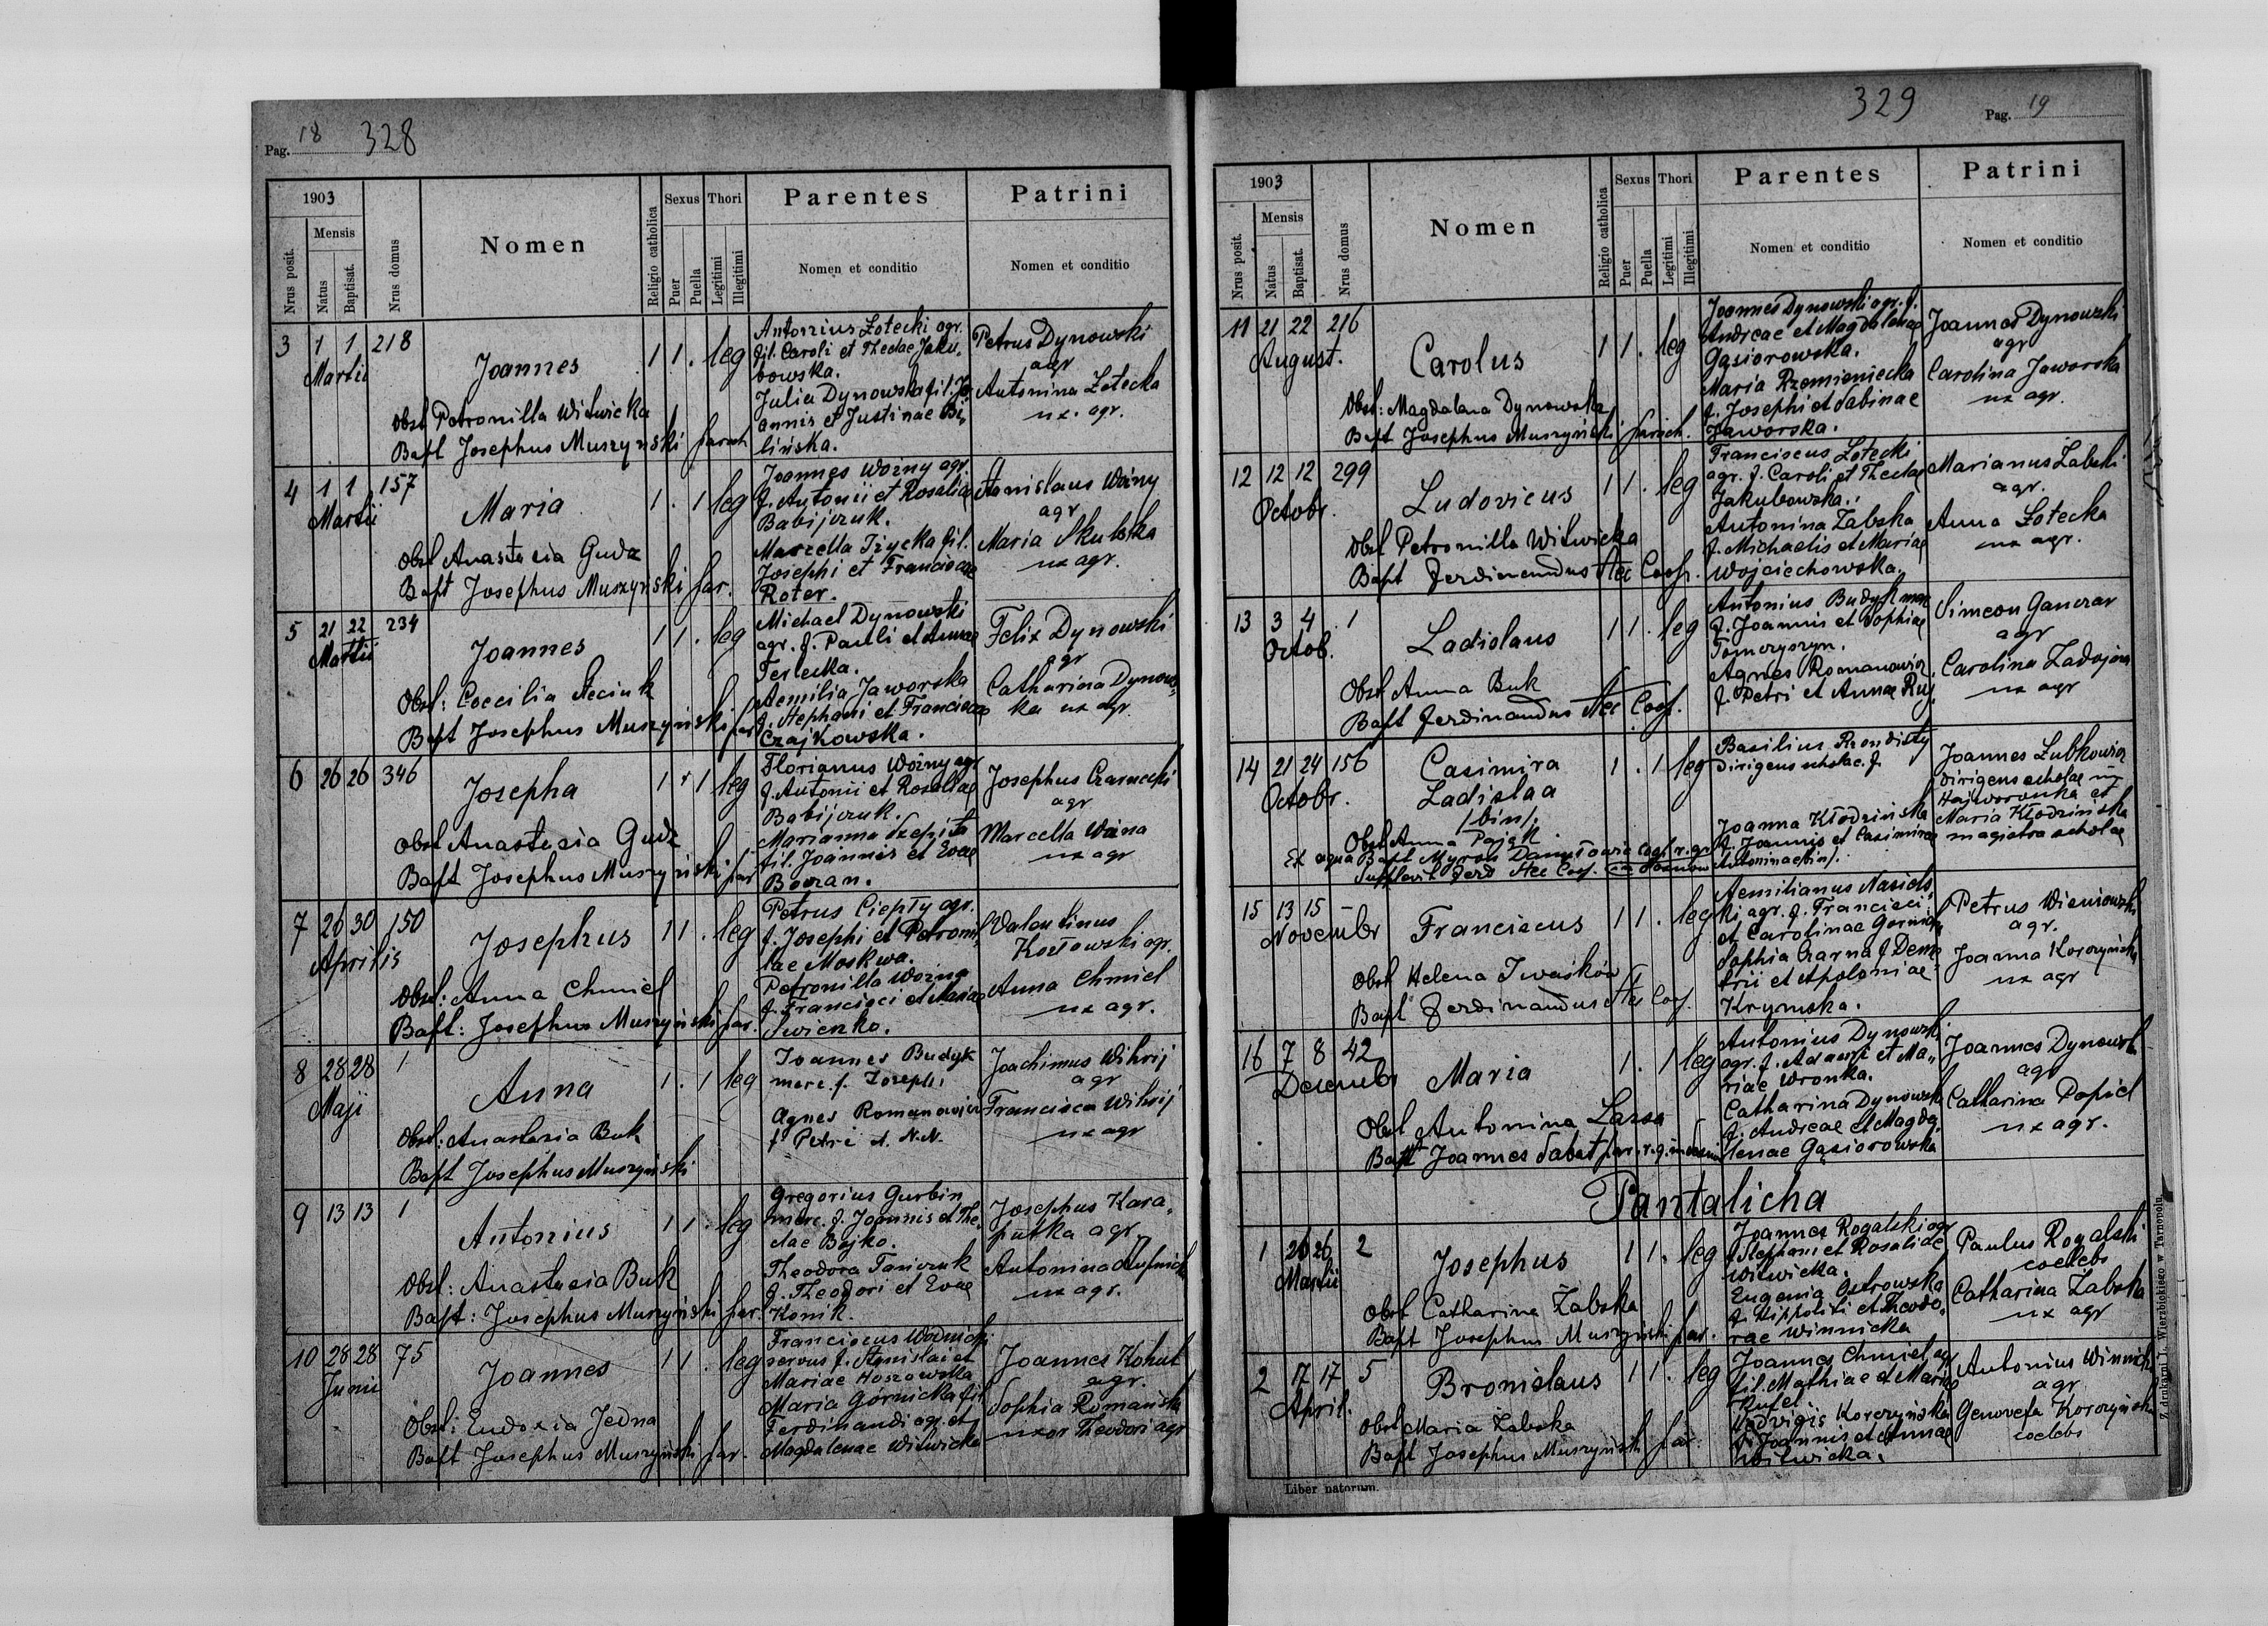 Pag. 18 328
1903
Nrus posit.
Mensis
Natus
Baptisat.
Nrus domus
Nomen
Religio catholica
Sexus
Puer
Puella
Thori
Legitimi
Illegitimi
Parentes
Nomen et conditio
Patrini
Nomen et conditio
3 1 1 218
Martii
Joannes
1 1 . leg
Obst Petronilla Witwicka
Bapt Josephus Muszyński paroch
Antonius Łotecki agr.
fil. Caroli et Theclae Jaku„
bowska.
Julia Dynowska fil. Jo
annis et Justinae Bi„
lińska.
Petrus Dynowski
agr
Antonina Łotecka
ux. agr.
4 1 1 157
Martii
Maria
1 . 1 leg
Obst Anastasia Gudz
Bapt Josephus Muszyński par.
Joannes Woźny agr.
f. Antonii et Rosaliae
Babijczuk.
Marcella Iżycka fil.
Josephi et Franciscae
Roter.
Stanislaus Woźny
agr
Maria Skulska
ux agr.
5 21 22 234
Martii
Joannes
1 1 . leg
Obst: Coecilia Steciuk
Bapt Josephus Muszyński par
Michael Dynowski
agr. f. Pauli et Annae
Terlecka.
Aemilia Jaworska
f. Stephani et Franciscae
Czajkowska.
Felix Dynowski
agr
Catharina Dynows„
ka ux agr.
6 26 26 346
Josepha
1 . 1 leg
Obst Anastasia Gudz
Bapt Josephus Muszyński par
Florianus Woźny agr
f. Antonii et Rosaliae
Babijczuk.
Marianna Szepita
fil. Joannis et Evae
Bouran.
Josephus Czarnecki
agr
Marcella Woźna
ux agr
7 26 30 150
Aprilis
Josephus
1 1 . leg
Obst: Anna Chmiel
Bapt: Josephus Muszyński par.
Petrus Ciepły agr.
f. Josephi et Petronil
lae Moskwa.
Petronilla Woźna
f. Francisci et Mariae
Swienko.
Valentinus
Kozłowski agr.
Anna Chmiel
ux agr.
8 28 28 1
Maji
Anna
1 . 1 leg
Obst: Anastasia Buk
Bapt Josephus Muszyński
Joannes Budyk
merc. f. Josephi
Agnes Romanowicz
f Petri et N.N.
Joachimus Wihrij
agr
Francisca Wihrij
ux agr
9 13 13 1
Antonius
1 1 . leg
Obst: Anastasia Buk
Bapt: Josephus Muszyński par.
Gregorius Gurbin
merc. f. Joannis et The„
clae Bojko.
Theodora Tasiczuk
f. Theodori et Evae
Konik.
Josephus Kara„
putka agr
Antonina Stupnicka
ux agr.
10 28 28 75
Junii
Joannes
1 1 . leg
Obst: Eudoxia Jedna
Bapt Josephus Muszyński par.
Franciscus Wodnicki
servus f. Stanislai et
Mariae Hoszowska
Maria Górnicka fil.
Ferdinandi agr. et
Magdalenae Witwicka
Joannes Kohut
agr.
Sophia Romańska
uxor Theodori agr
329 Pag. 19
1903
Nrus posit.
Mensis
Natus
Baptisat.
Nrus domus
Nomen
Religio catholica
Sexus
Puer
Puella
Thori
Legitimi
Illegitimi
Parentes
Nomen et conditio
Patrini
Nomen et conditio
11 21 22 216
August.
Carolus
1 1 . leg
Obst: Magdalena Dynowska
Bapt Josephus Muszyński paroch.
Joannes Dynowski agr. f.
Andreae et Magdalenae
Gąsiorowska.
Maria Rzemieniecka
f. Josephi et Sabinae
Jaworska.
Joannes Dynowski
agr
Carolina Jaworska
ux agr.
12 12 12 299
Octobr.
Ludovicus
1 1 . leg
Obst Petronilla Witwicka
Bapt Ferdinandus Stec Coop.
Franciscus Łotecki
agr. f. Caroli et Theclae
Jakubowska.
Antonina Żabska
f. Michaelis et Mariae
Wojciechowska.
Marianus Żabski
agr.
Anna Łotecka
ux agr.
13 3 4 1
Octob.
Ladislaus
1 1 . leg
Obst Anna Buk
Bapt Ferdinandus Stec Coop.
Antonius Budyk merc
f. Joannis et Sophiae
Tomczyszyn.
Agnes Romanowicz
f. Petri et Annae Ruj
Simeon Ganczar
agr
Carolina Zadojna
ux agr
14 21 24 156
Octobr.
Casimira
Ladislaa
/bin/.
1 . 1 leg
Obst Anna Pająk.
Ex aqua Bapt Myron Daniłowic coop. r. gr
Supplevit Ferd Stec Coop.
Basilius Rzondisty
dirigens scholae. f.
Joanna Kłodzińska
f. Joannis et Casimirae
Antoninae /bin/.
Joannes Lubkowicz
dirigens scholae in
Hajworonka et
Maria Kłodzińska
magistra scholae
15 13 15 –
Novembr
Franciscus
1 1 . leg
Obst Helena Iwaśków
Bapt Ferdinandus Stec Coop.
Aemilianus Nasids„
ki agr. f. Francisci
et Carolinae Gornicka
Sophia Czarna f. Deme
trii et Apoloniae
Krymska.
Petrus Wieniowski
agr.
Joanna Korczyńska
ux agr
16 7 8 42
Decembr
Maria
1 . 1 leg
Obst Antonina Łassa
Bapt Joannes Sabat par. r. g. in
Antonius Dynowski
agr. f. Adami et Ma„
riae Wronka.
Catharina Dynowska
f. Andreae et Magda„
lenae Gąsiorowska
Joannes Dynowsk
agr
Catharina Popiel
ux agr.
Pantalicha
1 26 26 2
Martii
Josephus
1 1 . leg
Obst Catharina Żabska
Bapt Josephus Muszyński par.
Joannes Rogalski agr
f. Stephani et Rosaliae
Witwicka.
Eugenia Ostrowska
f. Hippoliti et Theodo„
rae Winnicka
Paulus Rogalski
coelebs
Catharina Żabska
ux agr
2 17 17 5
April.
Bronislaus
1 1 . leg
Obst Maria Żabska
Bapt Josephus Muszyński par.
Joannes Chmiel agr
fil. Mathiae et Mariae
Kufel.
Hedvigis Korczyńska
f. Joannis et Annae
Witwicka.
Antonius Winnicki
agr
Genovefa Korczyńska
coelebs
Liber natorum.
Z drukarni L. Wierzbickiego w Tarnopolu.